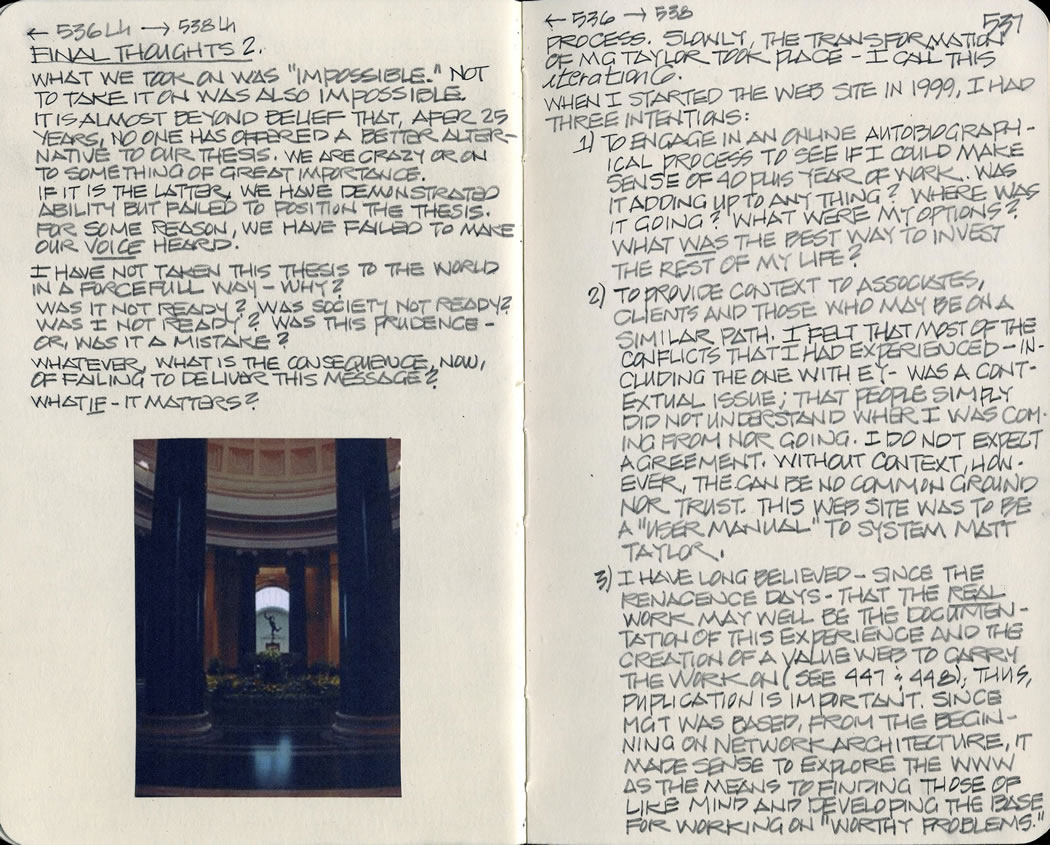 ← 536 LH → 538 LH
FINAL THOUGHTS 2.
WHAT WE TOOK ON WAS "IMPOSSIBLE." NOT
TO TAKE IT ON WAS ALSO IMPOSSIBLE.
IT IS ALMOST BEYOND BELIEF THAT, AFER 25
YEARS, NO ONE HAS OFFERED A BETTER ALTER-
NATIVE TO OUR THESIS. WE ARE CRAZY OR ON
TO SOMETHING OF GREAT IMPORTANCE.
IF IT IS THE LATTER, WE HAVE DEMONSTRATED
ABILITY BUT FAILED TO POSITION THE THESIS.
FOR SOME REASON, WE HAVE FAILED TO MAKE
OUR VOICE HEARD.
I HAVE NOT TAKEN THIS THESIS TO THE WORLD
IN A FORCEFULL WAY - WHY?
WAS IT NOT READY? WAS SOCIETY NOT READY?
WAS I NOT READY? WAS THIS PRUDENCE -
OR, WAS IT A MISTAKE?
WHATEVER, WHAT IS THE CONSEQUENCE, NOW,
OF FAILING TO DELIVER THIS MESSAGE?
WHAT IF - IT MATTERS?
← 536 → 538
537
PROCESS. SLOWLY, THE TRANSFORMATION
OF MG TAYLOR TOOK PLACE - I CALL THIS
iteration 6.
WHEN I STARTED THE WEB SITE IN 1999, I HAD
THREE INTENTIONS:
1) TO ENGAGE IN AN ONLINE AUTOBIOGRAPH-
ICAL PROCESS TO SEE IF I COULD MAKE
SENSE OF 40 PLUS YEAR OF WORK. WAS
IT ADDING UP TO ANY THING? WHERE WAS
IT GOING? WHAT WERE MY OPTIONS?
WHAT WAS THE BEST WAY TO INVEST
THE REST OF MY LIFE?
2) TO PROVIDE CONTEXT TO ASSOCIATES,
CLIENTS AND THOSE WHO MAY BE ON A
SIMILAR PATH. I FELT THAT MOST OF THE
CONFLICTS THAT I HAD EXPERIENCED - IN-
CLUDING THE ONE WITH EY - WAS A CONT-
EXTUAL ISSUE; THAT PEOPLE SIMPLY
DID NOT UNDERSTAND WHER I WAS COM-
ING FROM NOR GOING. I DO NOT EXPECT
AGREEMENT. WITHOUT CONTEXT, HOW-
EVER, THE CAN BE NO COMMON GROUND
NOR TRUST. THIS WEB SITE WAS TO BE
A "USER MANUAL" TO SYSTEM MATT
TAYLOR.
3) I HAVE LONG BELIEVED - SINCE THE
RENACENCE DAYS - THAT THE REAL
WORK MAY WELL BE THE DOCUMEN-
TATION OF THIS EXPERIENCE AND THE
CREATION OF A VALUE WEB TO CARRY
THE WORK ON (SEE 447 & 448); THUS,
PUPLICATION IS IMPORTANT. SINCE
MGT WAS BASED, FROM THE BEGIN-
NING ON NETWORK ARCHITECTURE, IT
MADE SENSE TO EXPLORE THE WWW
AS THE MEANS TO FINDING THOSE OF
LIKE MIND AND DEVELOPING THE BASE
FOR WORKING ON "WORTHY PROBLEMS."